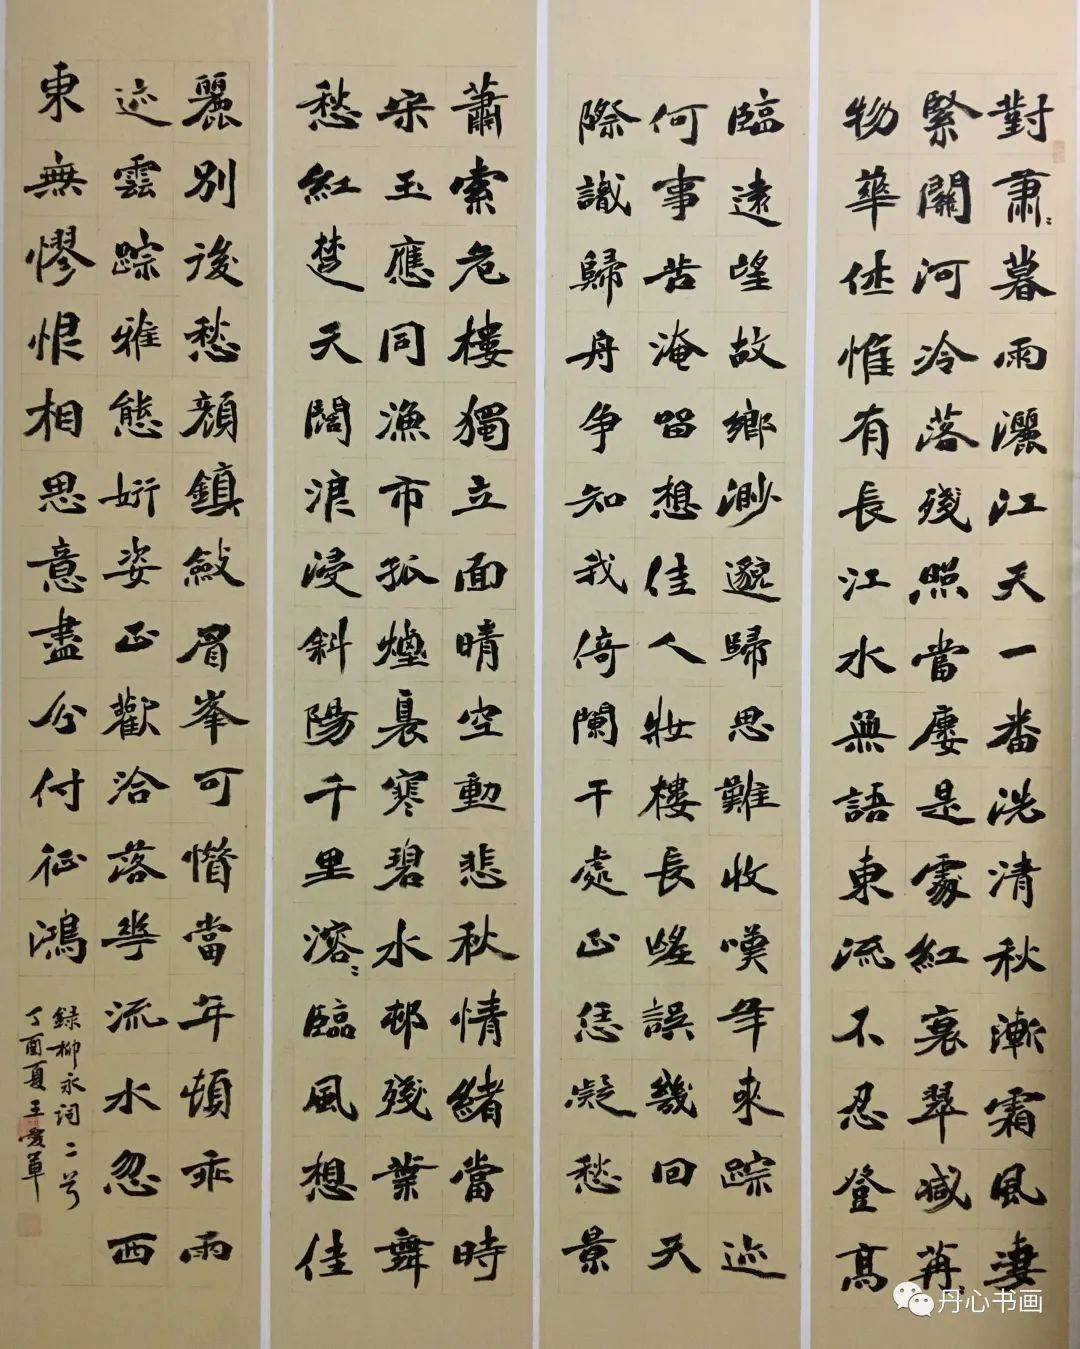 對肅〻暮雨灑江天一番洗清秋漸霜風凄
緊關河冷落殘照當廔是處紅衰翠減苒〻
物華休惟有長江水無語東流不忍登高
臨遠望故鄉渺邈歸思難收嘆年來踪迹
何事苦淹留想佳人妝樓長望誤幾回天
際識歸舟争知我倚闌干處正恁凝愁景
蕭索危樓獨立面晴空動悲秋情緒當時
宋玉應同漁市孤煙裊寒碧水邨殘葉舞
愁紅楚天闊浪浸斜陽千里溶〻臨風想佳
麗別後愁顏鎮斂眉峯可惜當年頓乖雨
迹雲踪雅態妍姿正歡洽落花流水忽西
東無憀恨相思意盡分付征鴻
錄柳永詞二首
丁酉夏王愛軍
丹心书画